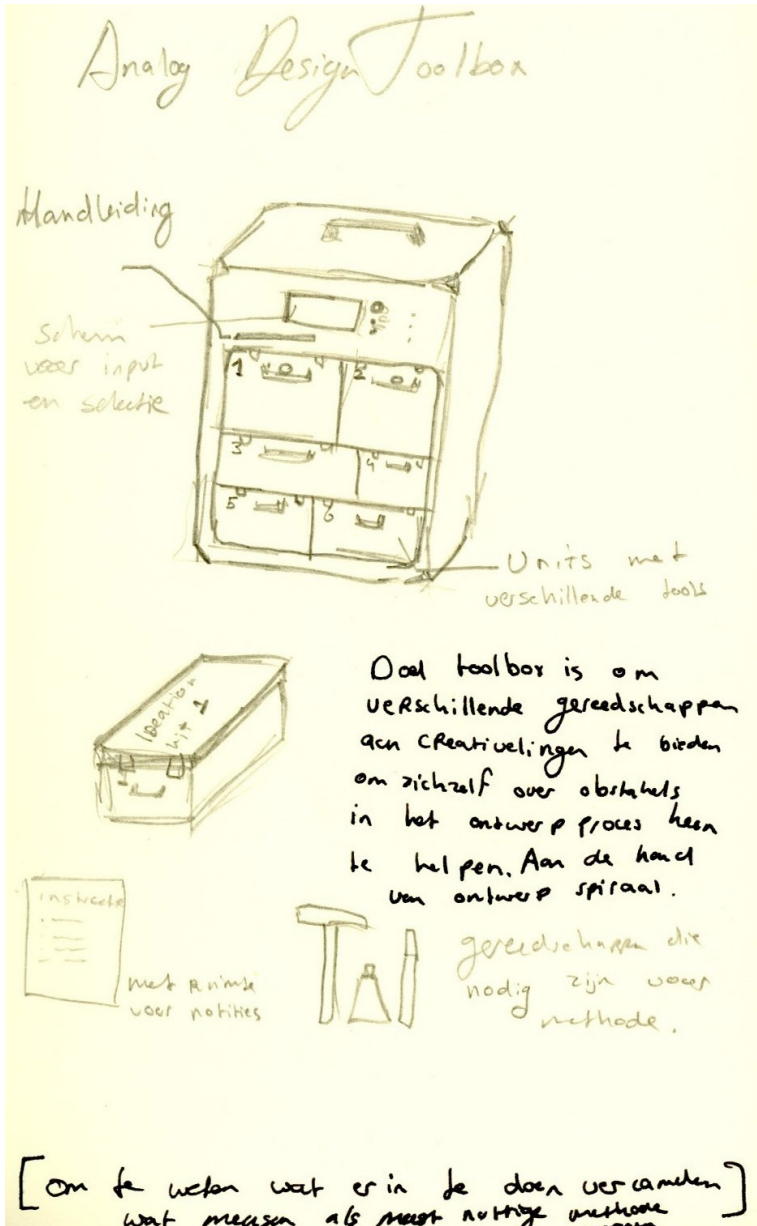 Analog Design Toolbox
Handleiding
scherm
voor input
en selectie
1
2
3
4
5
6
Units met
verschillende tools
Ideation
kit 1
Doel toolbox is om
verschillende gereedschappen
aan creativelingen te bieden
om zichzelf over obstakels
in het ontwerp proces heen
te helpen. Aan de hand
van ontwerp spiraal.
instructie
met Ruimte
voor notities
gereedschappen die
nodig zijn voor
methode.
[om te weten wat er in te doen verzamelen]
wat mensen als meest nuttige methode